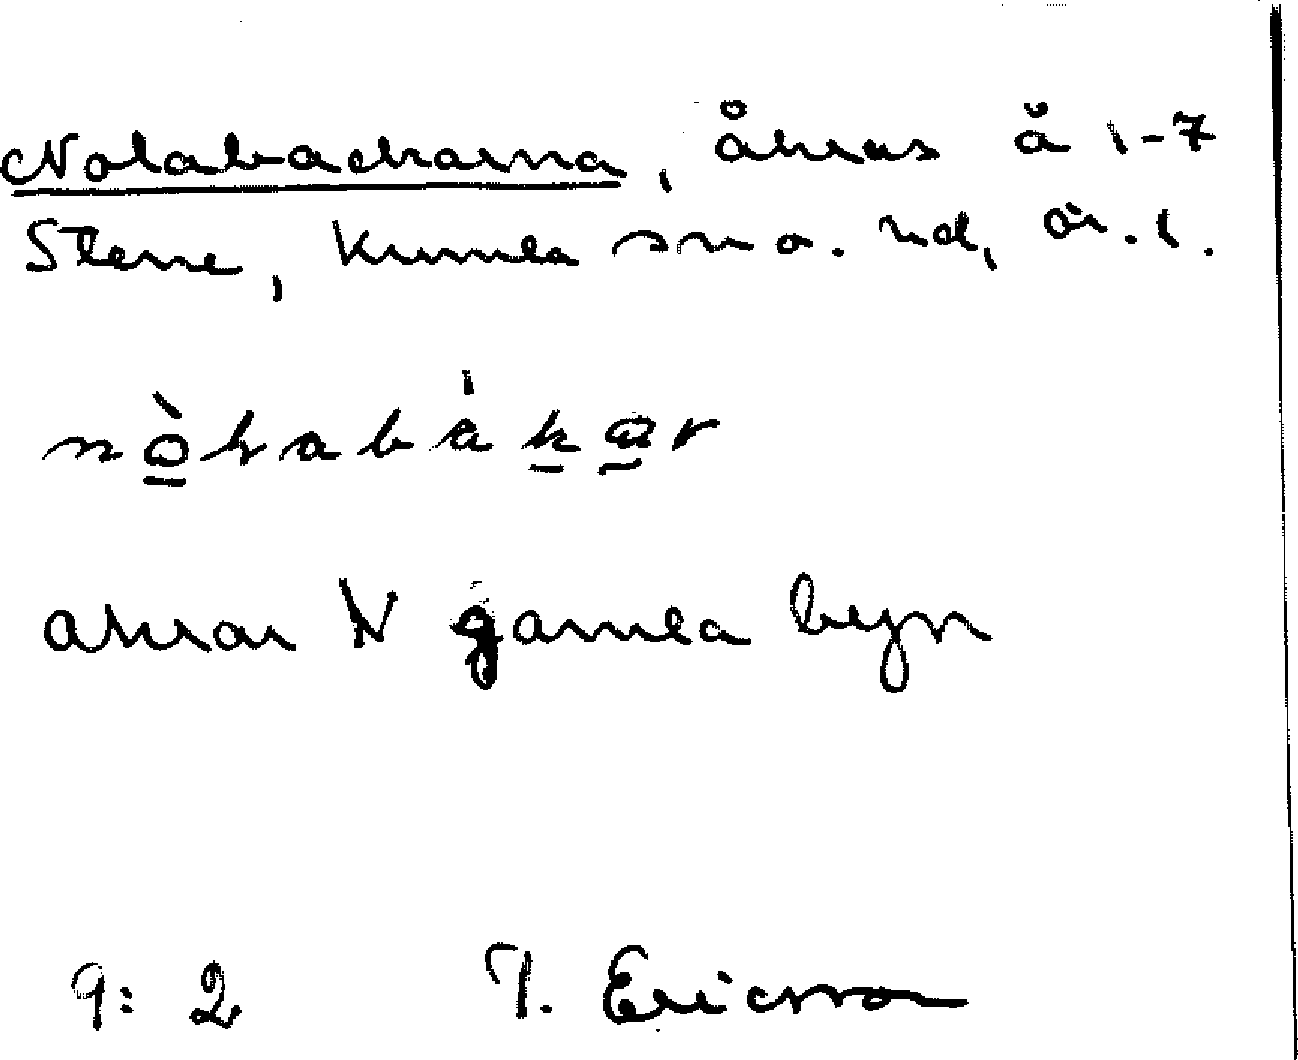 Nolabackarna, åkrar å 1-7
Stene, Kumla sn o. hd, Ör. l.
nòḷabákar
åkrar N gamla byn
9: 2 T. Ericsson